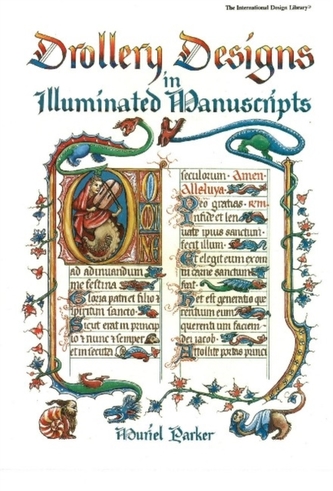 The International Design Library®
Drollery Designs
in
Illuminated Manuscripts
seculorum· Amen·
Alleluya·
Deo gratias· 
Infid et len
uate ipius sanctum
fecit illum·
Et elegit eum
in carne sanctum
fiat·
Het est generatio que
rentium eum
querentium faciem
dei jacob·
Attollite portas princi
ad adiuuandum
me festina
Gloria patri et filio
spiritui sancto·
Sicut erat in principi
o et nunc et semper
et in secula
Muriel Parker